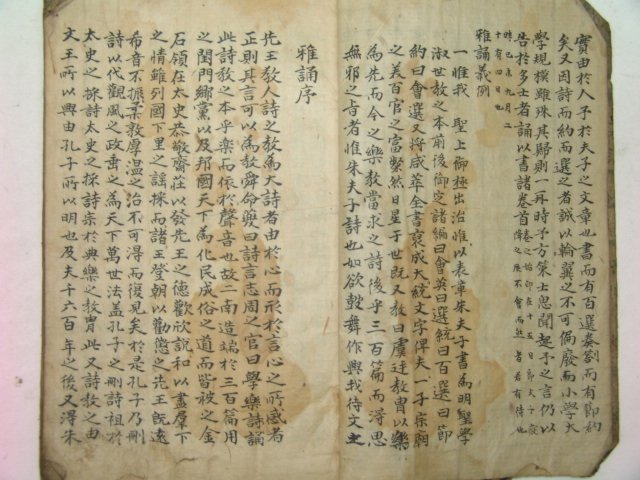 實由於人予於夫子之文章也書而有百選奏劄而有節約
矣又因詩而約而選之者誠以輪翼之不可偏廢而小學大
學規橫雖殊其歸則一耳時予方策士思聞起予之言仍以
告於多士者誦以書諸卷首
時己未九月二
十有四日也
雅誦義例
一惟我 聖上御極出治惟以表章朱夫子書為明聖學
淑世教之本前後御定諸編曰會英曰選統曰百選曰節
約曰會選又將咸萃全書裒成大統文字俾夫一子宗廟
之美百官之富縶然日星于世既又教曰虞廷教冑以樂
為先而今之樂教當求之詩後乎三百篇而得思
無邪之旨者惟朱夫子詩也如欲鼓舞作興我待文王
雅誦序
先王教人詩之教為大詩者由於心而形於言心之所感者
正則其言可以為教舜命夔曰詩言志周之官曰學樂誦詩
此詩教之本乎樂而依於聲音也故二南造端於三百篇用
之閨門鄉黨以及邦國天下為化民成俗之道而皆被之金
石領在太史恭敬齋莊以發先王之德歡欣說和以盡羣下
之情雖列國下里之謠採而諸王登朝以勸懲之先王既遠
希音不振柔敦厚溫之治不可得而復見矣於是孔子乃刪
詩以代觀風之政垂之為天下萬世法盖孔子之刪詩祖於
太史之採詩太史之採詩宗於典樂之教冑此又詩教之由
文王所以興由孔子所以明也及夫千六百年之後又得朱